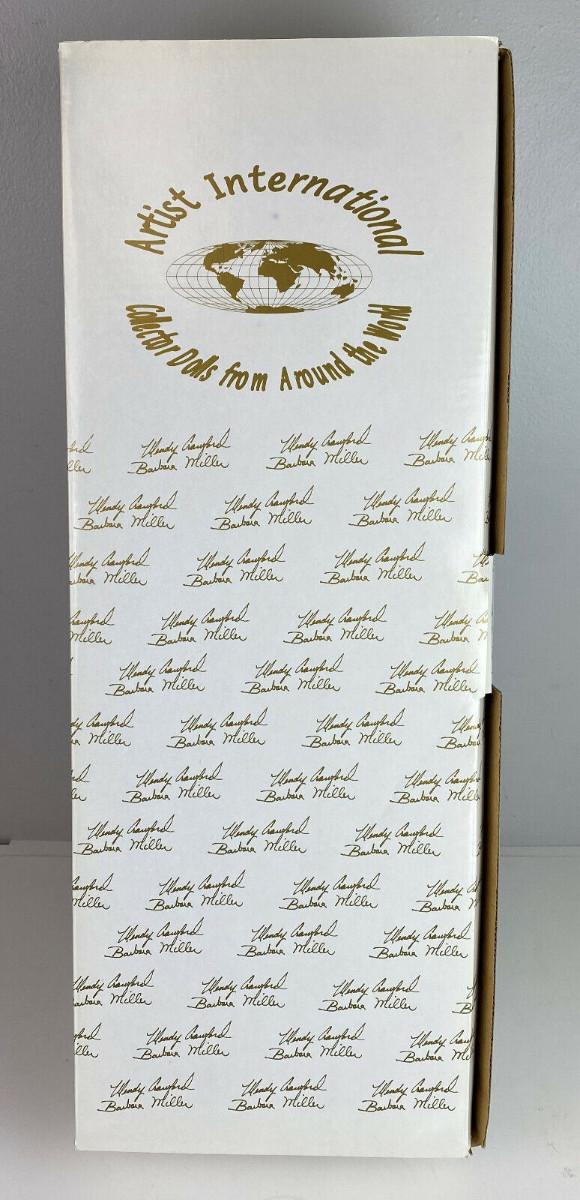 Artist International
Collector Dolls from Around the World
Wendy Crawford Wendy Crawford Wendy
Barbara Miller Barbara Miller Barbara
Wendy Crawford Wendy Crawford Wendy Crawford
Barbara Miller Barbara Miller Barbara Miller
Crawford Wendy Crawford Wendy Crawford
Miller Barbara Miller Barbara Miller
Wendy Crawford Wendy Crawford Wendy
Miller Barbara Miller Barbara Miller Barbara
Wendy Crawford Wendy Crawford Wendy Crawford
Barbara Miller Barbara Miller Barbara Miller
Crawford Wendy Crawford Wendy Crawford
Miller Barbara Miller Barbara Miller
Wendy Crawford Wendy Crawford Wendy Crawford
Barbara Miller Barbara Miller Barbara
Wendy Crawford Wendy Crawford Wendy Crawford
Barbara Miller Barbara Miller Barbara Miller
Crawford Wendy Crawford Wendy Crawford Wendy
Barbara Miller Barbara Miller Barbara
Wendy Crawford Wendy Crawford Wendy Crawford
Barbara Miller Barbara Miller Barbara Miller
Wendy Crawford Wendy Crawford Wendy Crawford
Miller Barbara Miller Barbara Miller
Wendy Crawford Wendy Crawford Wendy
Barbara Miller Barbara Miller Barbara
Wendy Crawford Wendy Crawford Wendy Crawford
Barbara Miller Barbara Miller Barbara Miller